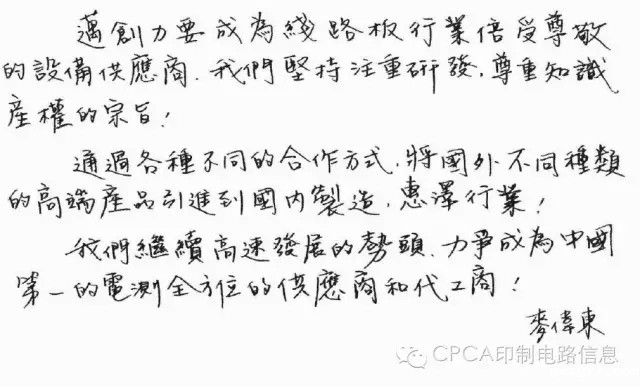 邁創力要成為綫路板行業倍受尊敬
的設備供應商.我們堅持注重研發,尊重知識
產權的宗旨!
通過各種不同的合作方式,將國外不同種類
的高端產品引進到國內製造,惠澤行業!
我們繼續高速發展的勢頭,力爭成為中國
第一的電測全方位的供應商和代工商!
麥偉東
CPCA印制电路信息